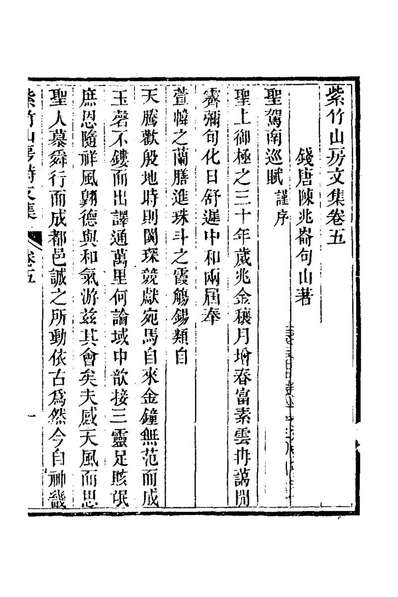 紫竹山房文集卷五
錢唐陳兆崙句山著
聖駕南巡賦謹序
聖上御極之三十年歲兆金穰月增春富素雲冉藹閒
霽彌旬化日舒遲中和兩屆奉
萱幃之蘭膳進珠斗之霞觴錫類自
天騰歡殷地時則閩琛競獻宛馬自來金鐘無范而成
玉磬不鏤而出譯通萬里何論域中歆接三靈足賅氓
庶恩隨祥風翺德與和氣游茲其會矣夫感天風而思
聖人慕舜行而成都邑誠之所動依古爲然今自神畿
紫竹山房詩文集
卷五
一